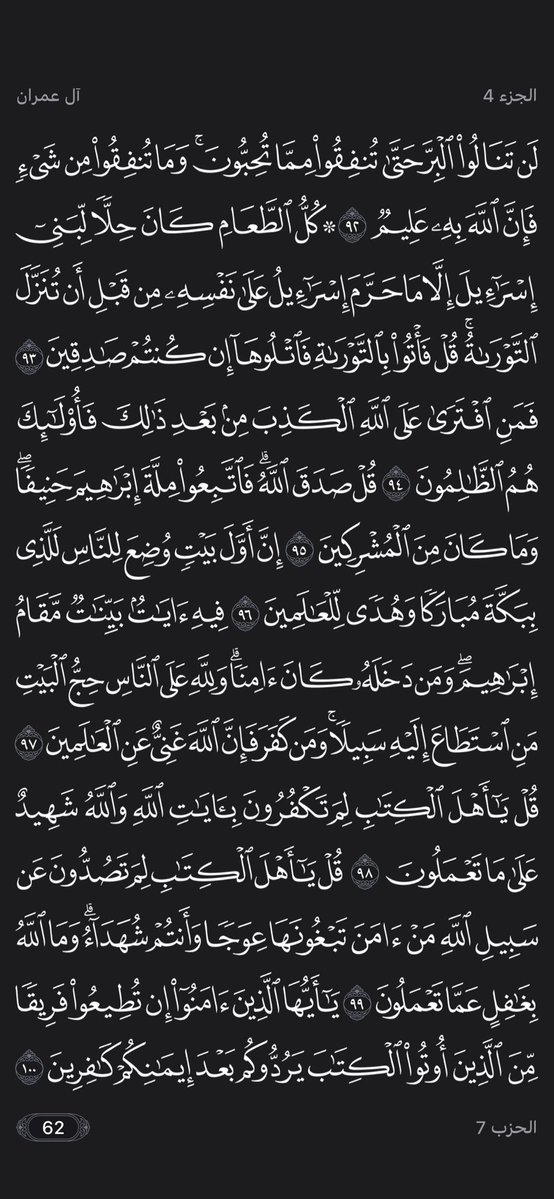 الجزء 4
آل عمران
لَن تَنَالُوا۟ ٱلْبِرَّ حَتَّىٰ تُنفِقُوا۟ مِمَّا تُحِبُّونَ ۚ وَمَا تُنفِقُوا۟ مِن شَىْءٍ
فَإِنَّ ٱللَّهَ بِهِۦ عَلِيمٌ ٩٢ ۞ كُلُّ ٱلطَّعَامِ كَانَ حِلًّا لِّبَنِىٓ
إِسْرَٰٓءِيلَ إِلَّا مَا حَرَّمَ إِسْرَٰٓءِيلُ عَلَىٰ نَفْسِهِۦ مِن قَبْلِ أَن تُنَزَّلَ
ٱلتَّوْرَىٰةُ ۗ قُلْ فَأْتُوا۟ بِٱلتَّوْرَىٰةِ فَٱتْلُوهَآ إِن كُنتُمْ صَـٰدِقِينَ ٩٣
فَمَنِ ٱفْتَرَىٰ عَلَى ٱللَّهِ ٱلْكَذِبَ مِنۢ بَعْدِ ذَٰلِكَ فَأُو۟لَـٰٓئِكَ
هُمُ ٱلظَّـٰلِمُونَ ٩٤ قُلْ صَدَقَ ٱللَّهُ ۗ فَٱتَّبِعُوا۟ مِلَّةَ إِبْرَٰهِيمَ حَنِيفًا ۖ
وَمَا كَانَ مِنَ ٱلْمُشْرِكِينَ ٩٥ إِنَّ أَوَّلَ بَيْتٍ وُضِعَ لِلنَّاسِ لَلَّذِى
بِبَكَّةَ مُبَارَكًا وَهُدًى لِّلْعَـٰلَمِينَ ٩٦ فِيهِ ءَايَـٰتٌۢ بَيِّنَـٰتٌ مَّقَامُ
إِبْرَٰهِيمَ ۖ وَمَن دَخَلَهُۥ كَانَ ءَامِنًا ۗ وَلِلَّهِ عَلَى ٱلنَّاسِ حِجُّ ٱلْبَيْتِ
مَنِ ٱسْتَطَاعَ إِلَيْهِ سَبِيلًا ۚ وَمَن كَفَرَ فَإِنَّ ٱللَّهَ غَنِىٌّ عَنِ ٱلْعَـٰلَمِينَ ٩٧
قُلْ يَـٰٓأَهْلَ ٱلْكِتَـٰبِ لِمَ تَكْفُرُونَ بِـَٔايَـٰتِ ٱللَّهِ وَٱللَّهُ شَهِيدٌ
عَلَىٰ مَا تَعْمَلُونَ ٩٨ قُلْ يَـٰٓأَهْلَ ٱلْكِتَـٰبِ لِمَ تَصُدُّونَ عَن
سَبِيلِ ٱللَّهِ مَنْ ءَامَنَ تَبْغُونَهَا عِوَجًا وَأَنتُمْ شُهَدَآءُ ۗ وَمَا ٱللَّهُ
بِغَـٰفِلٍ عَمَّا تَعْمَلُونَ ٩٩ يَـٰٓأَيُّهَا ٱلَّذِينَ ءَامَنُوٓا۟ إِن تُطِيعُوا۟ فَرِيقًا
مِّنَ ٱلَّذِينَ أُوتُوا۟ ٱلْكِتَـٰبَ يَرُدُّوكُم بَعْدَ إِيمَـٰنِكُمْ كَـٰفِرِينَ ١٠٠
الحزب 7
62